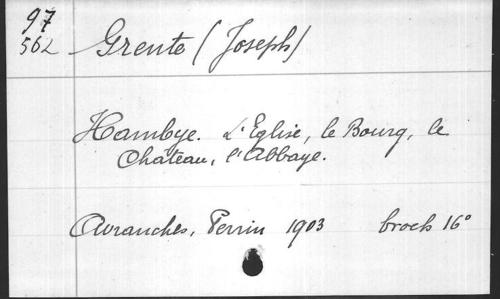 97
562 Grente (Joseph)
Hambye. L'Eglise, le Bourg, le
Château, l'Abbaye.
Avranches, Perrin 1903 broch 16°